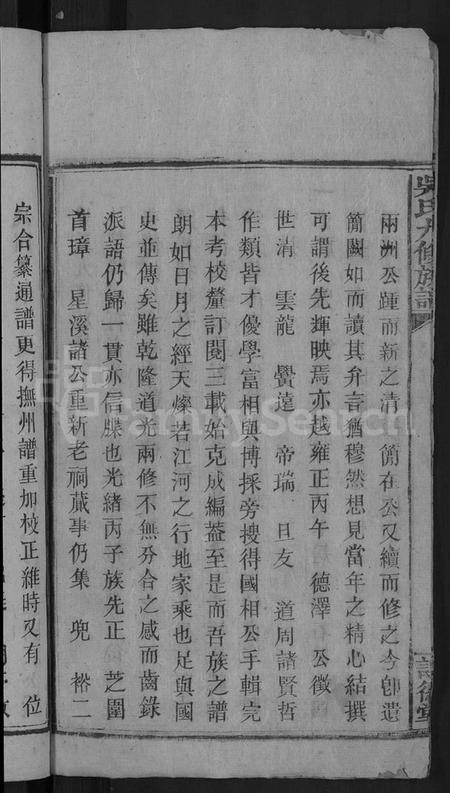 吳氏九修族譜
兩洲公踵而新之清 簡在公又續而修之今卽遺
簡闕如而讀其弁言猶穆然想見當年之精心結撰
可謂後先輝映焉亦越雍正丙午 德澤 公徵
世清 雲龍 覺遠 帝瑞 旦友 道周諸賢哲
作類皆才優學富相與博採旁搜得國相公手輯完
本考校釐訂閱三載始克成編蓋至是而吾族之譜
朗如日月之經天燦若江河之行地家乘也足與國
史並傳矣雖乾隆道光兩修不無分合之感而齒錄
派語仍歸一貫亦信牒也光緒丙子族先正 芝圃
首璋 星溪諸公重新老祠蕆事仍集 兜 裕二
宗合纂通譜更得撫州譜重加校正維時又有 位
FamilySearch